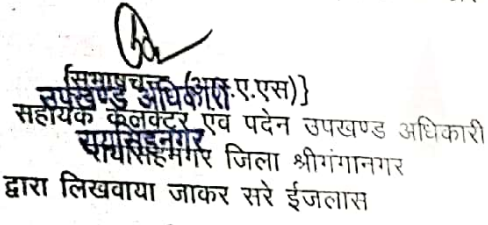 {सुभाषचन्द्र (आर.ए.एस)}
उपखण्ड अधिकारी
सहायक कलक्टर एवं पदेन उपखण्ड अधिकारी
रायसिंहनगर
रायसिंहनगर जिला श्रीगंगानगर
द्वारा लिखवाया जाकर सरे ईजलास